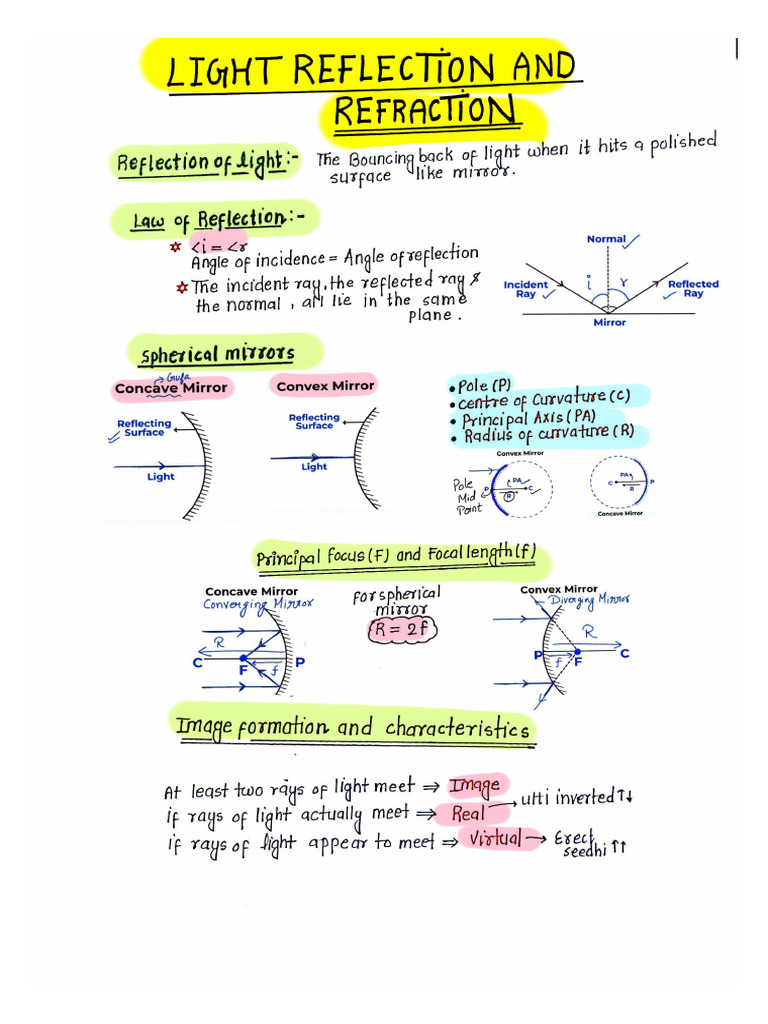 LIGHT REFLECTION AND
REFRACTION
Reflection of light:- The Bouncing back of light when it hits a polished
surface like mirror.
Law of Reflection:-
<i = <r
Angle of incidence = Angle of reflection
The incident ray, the reflected ray &
the normal, all lie in the same
plane.
Normal
Incident
Ray
i
r
Reflected
Ray
Mirror
Spherical mirrors
Gufa
Concave Mirror
Reflecting
Surface
Light
Convex Mirror
Reflecting
Surface
Light
• Pole (P)
• Centre of Curvature (C)
• Principal Axis (PA)
• Radius of curvature (R)
Convex Mirror
Pole
Mid
Point
P
PA
R
C
C
PA
R
P
Concave Mirror
Principal focus (F) and Focal length (f)
Concave Mirror
Converging Mirror
R
C
F
f
P
For spherical
mirror
R = 2f
Convex Mirror
Diverging Mirror
R
P
f
F
C
Image formation and characteristics
At least two rays of light meet ⇒ Image
if rays of light actually meet ⇒ Real → ulti inverted ↑↓
if rays of light appear to meet ⇒ Virtual → Erect
seedhi ↑↑